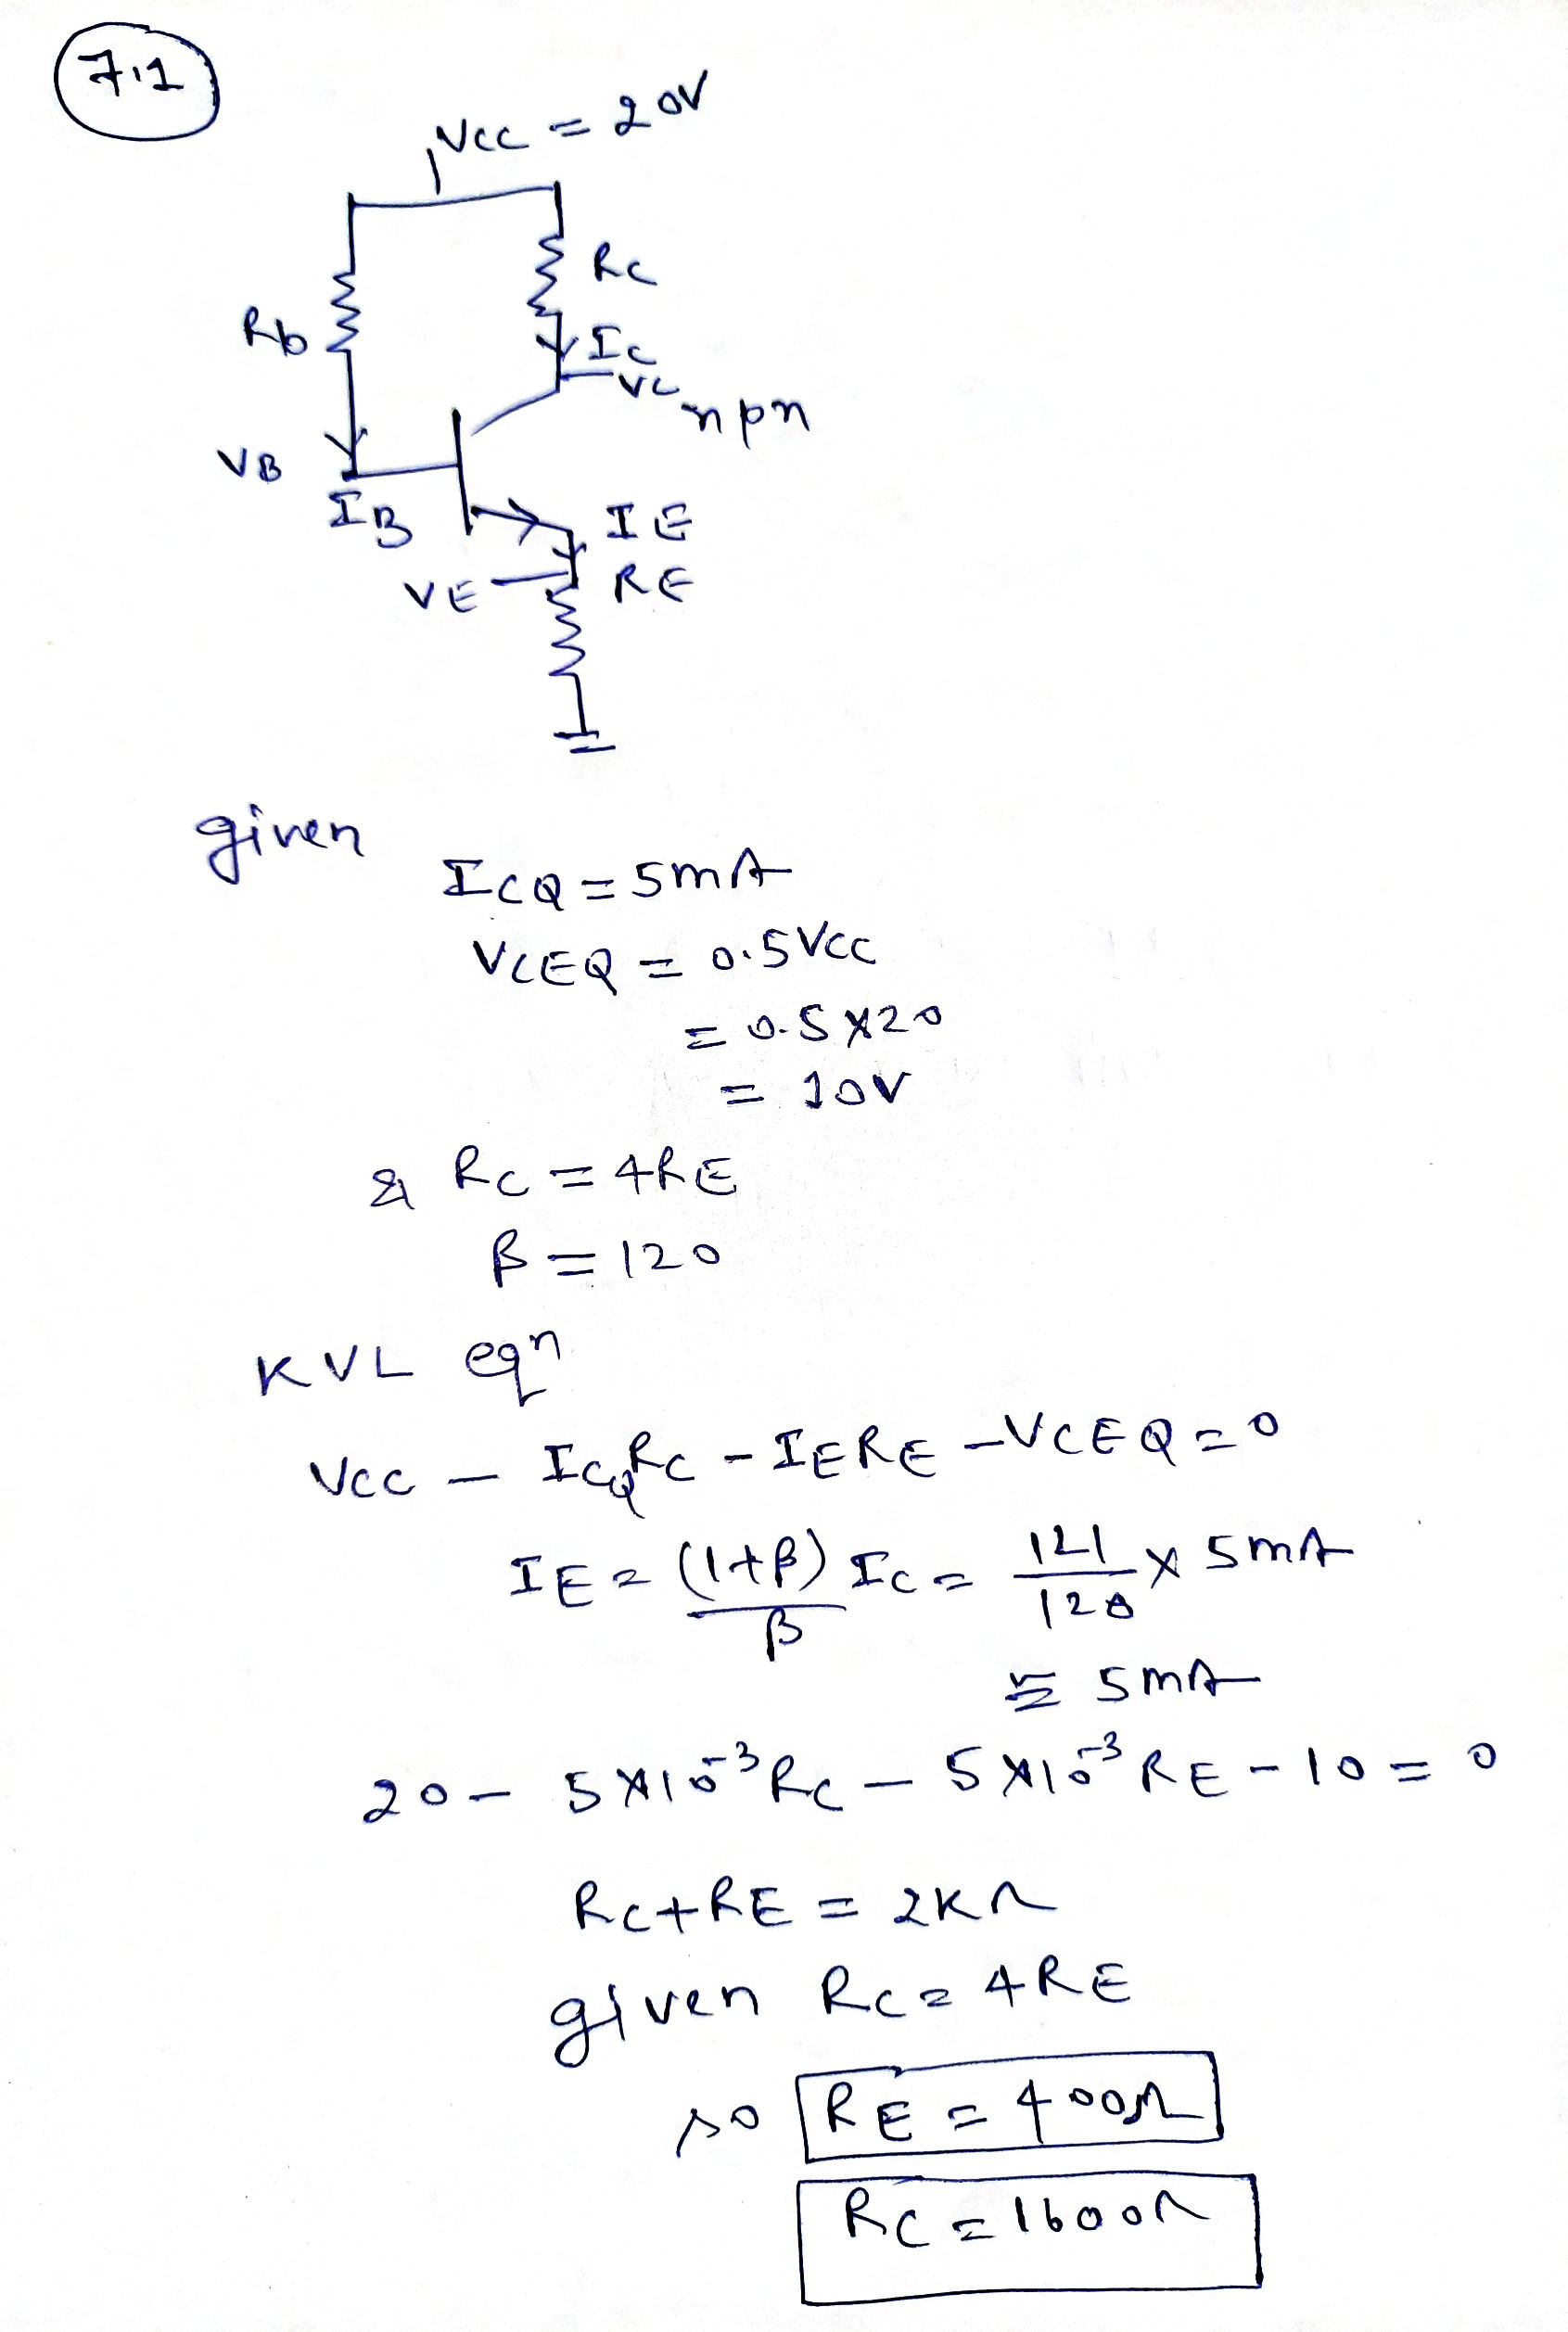 7.1
VCC = 20V
Rc
Rb
Ic
VC
npn
VB
IB
IE
VE
RE
given
ICQ = 5mA
VCEQ = 0.5VCC
= 0.5 × 20
= 10V
& RC = 4RE
β = 120
KVL eqn
VCC - ICQRC - IERE - VCEQ = 0
IE = (1+β)/β IC = 121/120 × 5mA
≅ 5mA
20 - 5×10⁻³RC - 5×10⁻³RE - 10 = 0
RC+RE = 2KΩ
given RC = 4RE
so RE = 400Ω
RC = 1600Ω